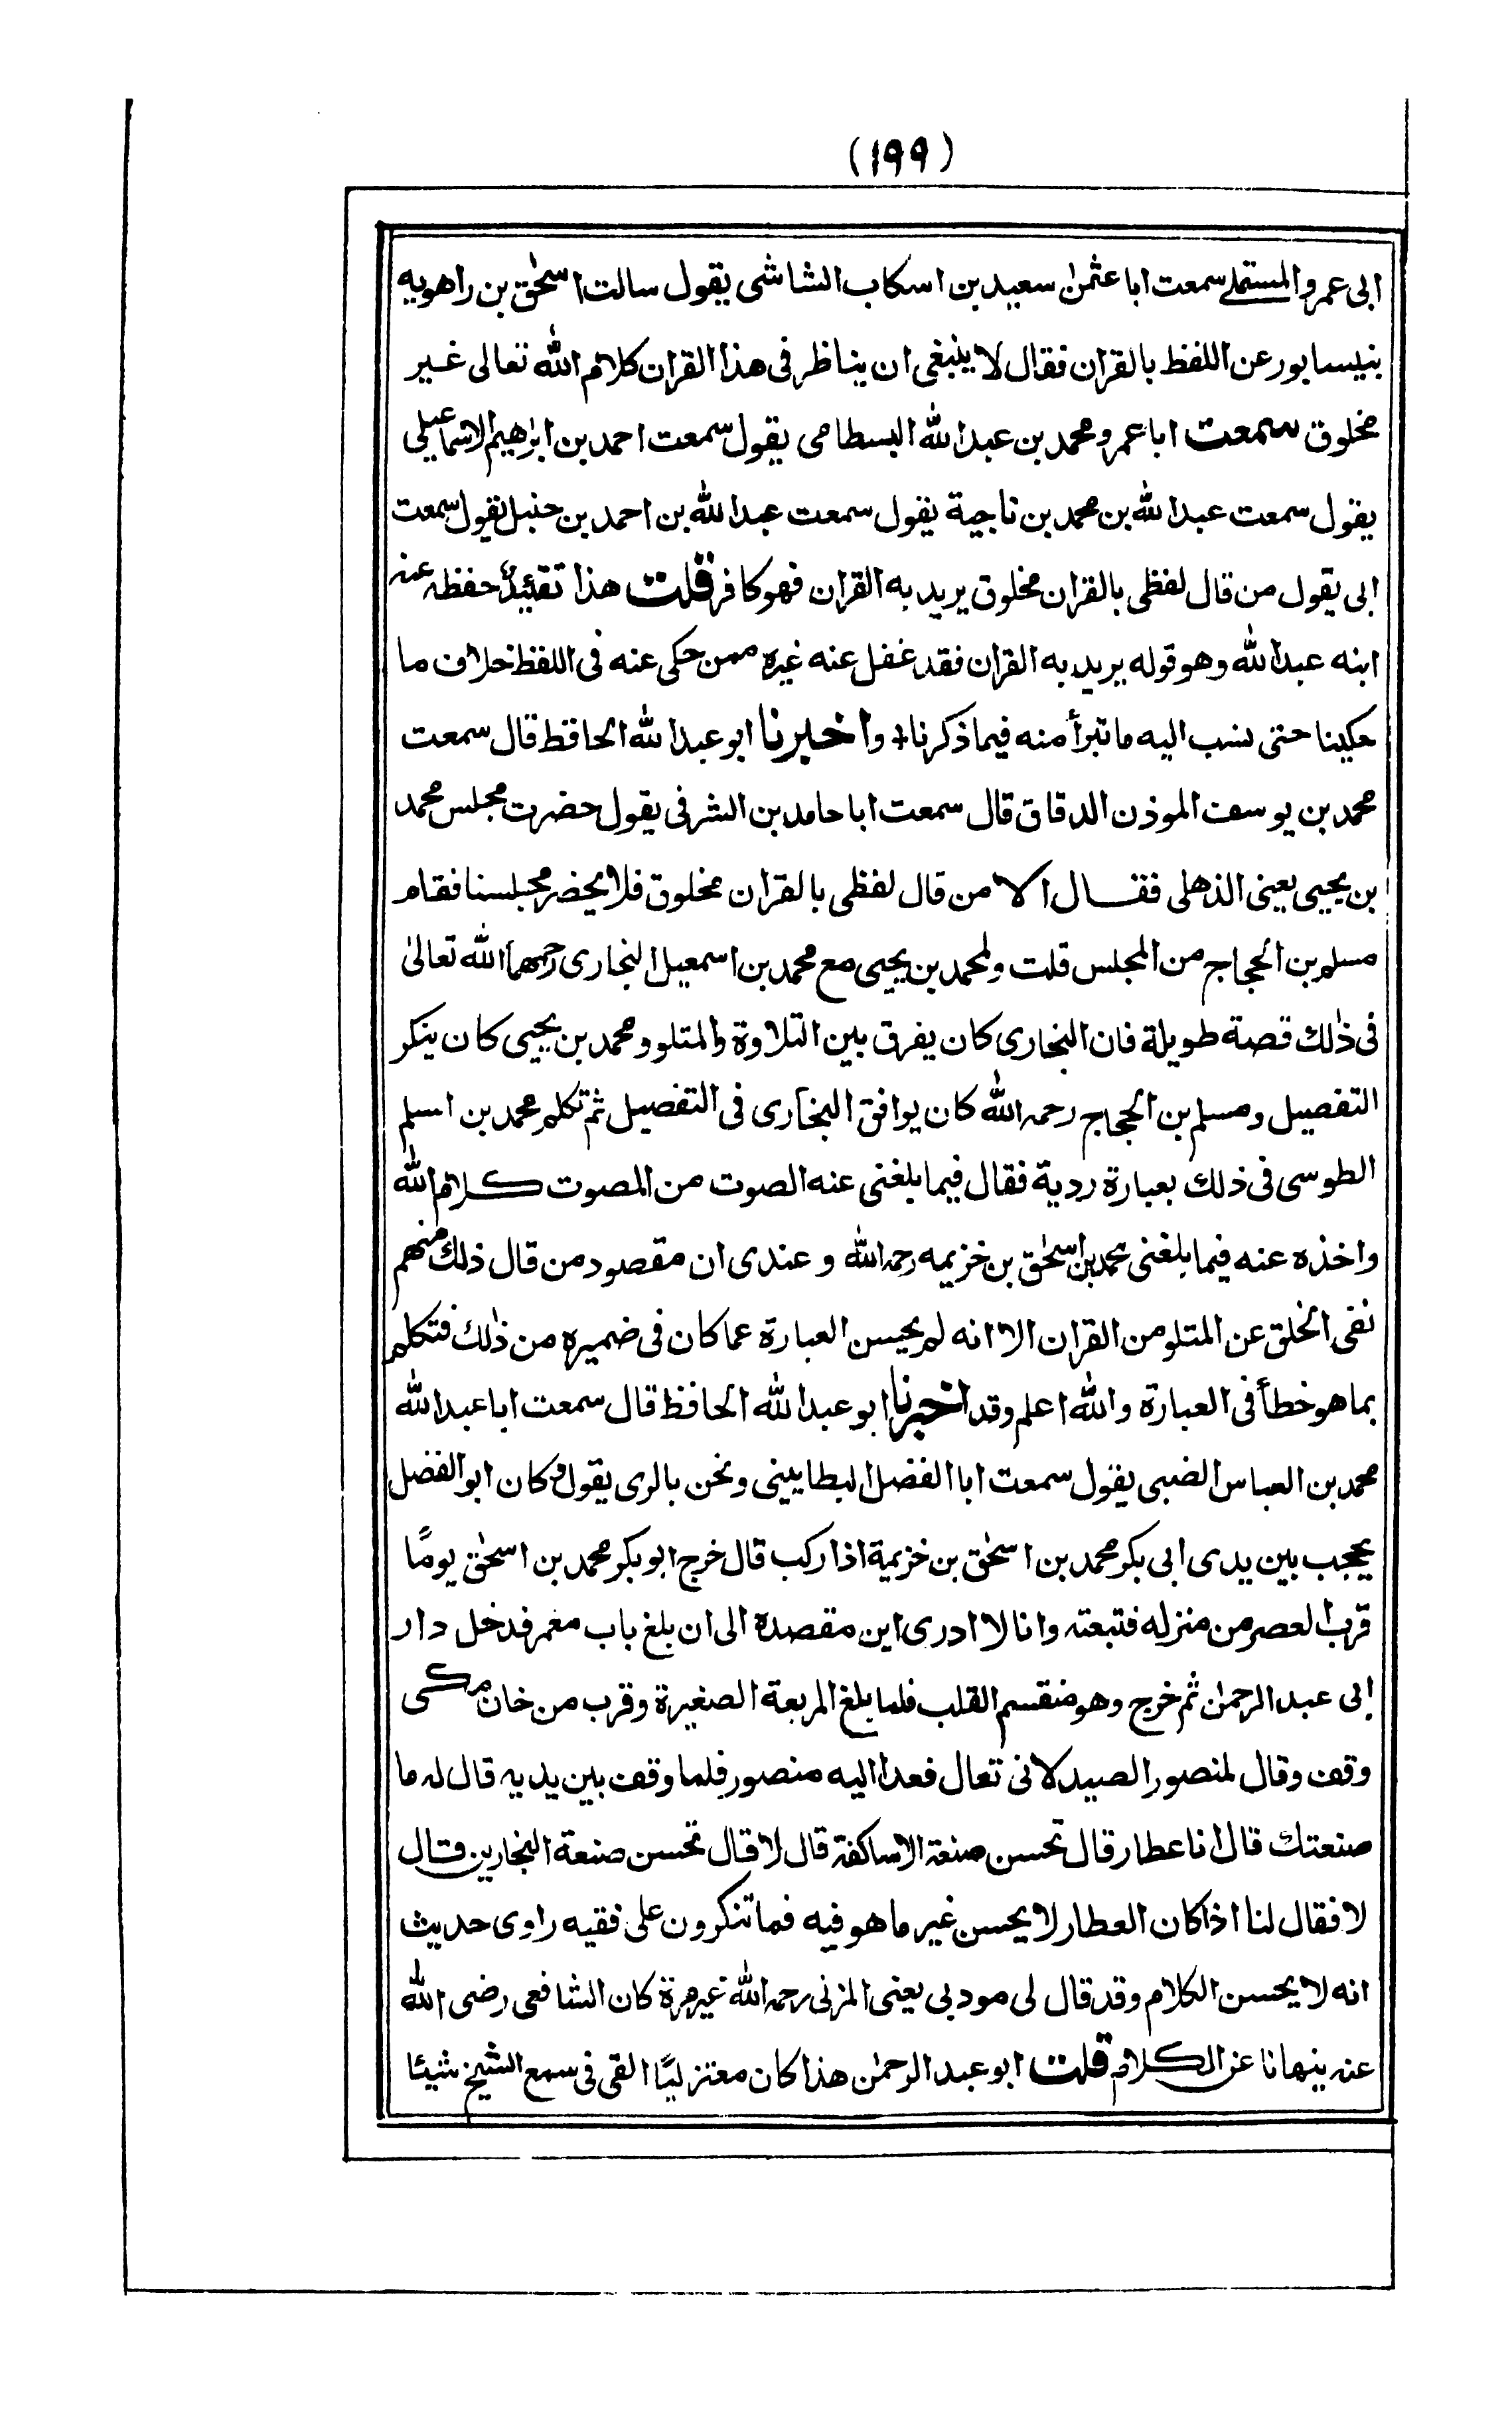 (١٩٩)
ابى عمرو المستملے سمعت ابا عثمٰن سعيد بن اسكاب الشاشى يقول سالت اسحٰق بن راهويه
بنيسابور عن اللفظ بالقران فقال لا ينبغى ان يناظر فى هذا القران كلام الله تعالى غير
مخلوق سمعت ابا عمرو محمد بن عبد الله البسطامى يقول سمعت احمد بن ابراهيم الاسماعيلى
يقول سمعت عبد الله بن محمد بن ناجية يقول سمعت عبد الله بن احمد بن حنبل يقول سمعت
ابى يقول من قال لفظى بالقران مخلوق يريد به القران فهو كافر قلت هذا تقييد حفظه عنه
ابنه عبد الله وهو قوله يريد به القران فقد غفل عنه غيره ممن حكى عنه فى اللفظ خلاف ما
حكينا حتى نسب اليه ما تبرأ منه فيما ذكرنا، واخبرنا ابو عبد الله الحافظ قال سمعت
محمد بن يوسف الموذن الدقاق قال سمعت ابا حامد بن الشرفى يقول حضرت مجلس محمد
بن يحيى يعنى الذهلى فقال الا من قال لفظى بالقران مخلوق فلا يحضر مجلسنا فقام
مسلم بن الحجاج من المجلس قلت ولمحمد بن يحيى مع محمد بن اسمعيل البخارى رحمهما الله تعالىٰ
فى ذٰلك قصة طويلة فان البخارى كان يفرق بين التلاوة والمتلو ومحمد بن يحيى كان ينكر
التفصيل ومسلم بن الحجاج رحمه الله كان يوافق البخارى فى التفصيل ثم تكلم محمد بن اسلم
الطوسى فى ذلك بعبارة ردية فقال فيما بلغنى عنه الصوت من المصوت كلام الله
واخذه عنه فيما بلغنى محمد بن اسحٰق بن خزيمه رحمه الله و عندى ان مقصود من قال ذلك منهم
نفى الخلق عن المتلو من القران الا انه لم يحسن العبارة عما كان فى ضميره من ذٰلك فتكلم
بما هو خطأ فى العبارة والله اعلم وقد اخبرنا ابو عبد الله الحافظ قال سمعت ابا عبد الله
محمد بن العباس الضبى يقول سمعت ابا الفضل البطايينى ونحن بالرى يقول وكان ابو الفضل
يحجب بين يدى ابى بكر محمد بن اسحٰق بن خزيمة اذا ركب قال خرج ابو بكر محمد بن اسحٰق يومًا
قرب العصر من منزله فتبعته وانا لا ادرى اين مقصده الى ان بلغ باب معمر فدخل دار
ابى عبد الرحمٰن ثم خرج وهو منقسم القلب فلما بلغ المربعة الصغيرة وقرب من خان مكى
وقف وقال لمنصور الصيدلانى تعال فعدا اليه منصور فلما وقف بين يديه قال له ما
صنعتك قال انا عطار قال تحسن صنعة الاساكفة قال لا قال تحسن صنعة النجارين قال
لا فقال لنا اذا كان العطار لا يحسن غير ما هو فيه فما تنكرون على فقيه راوى حديث
انه لا يحسن الكلام وقد قال لى مودبى يعنى المزنى رحمه الله غير مرة كان الشافعى رضى الله
عنه ينهانا عن الكلام قلت ابو عبد الرحمٰن هذا كان معتزليًا القى فى سمع الشيخ شيئا